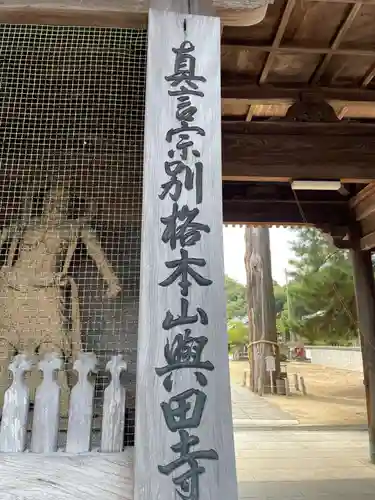 真言宗別格本山與田寺